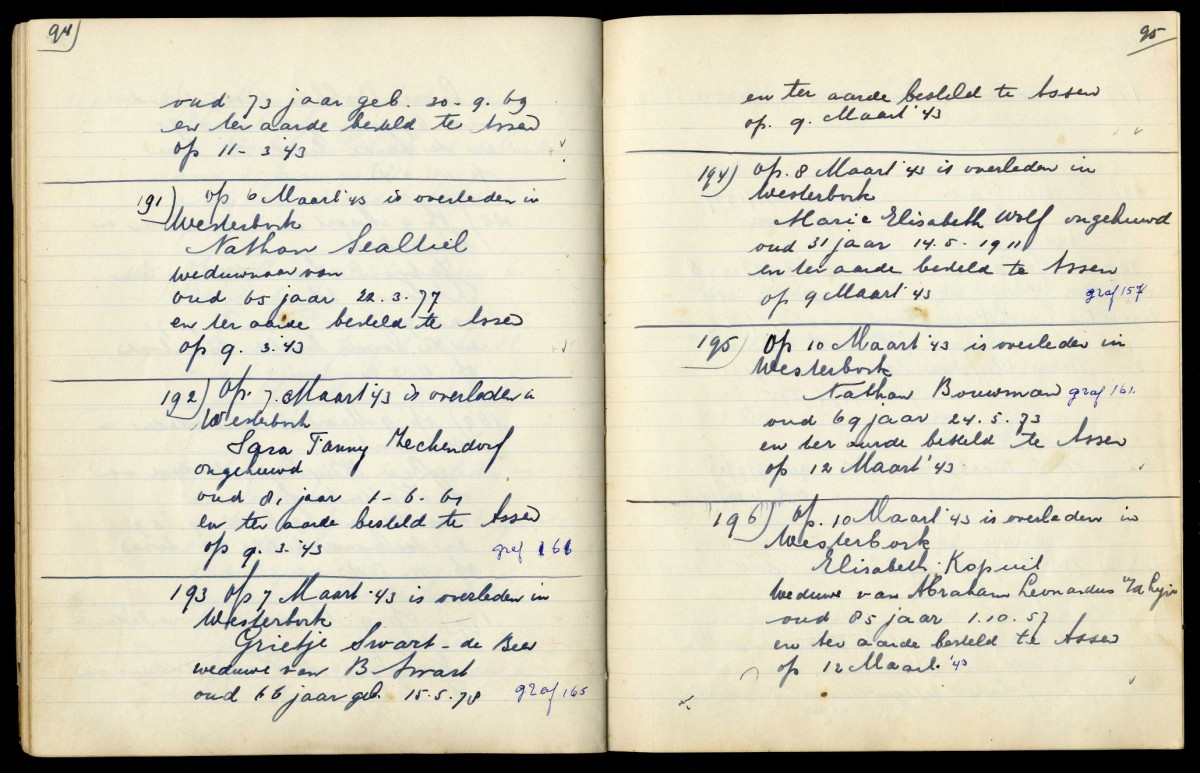 94)
oud 73 jaar geb. 20-9-69
en ter aarde besteld te Assen
op 11-3'43
191) op 6 Maart '43 is overleden in
Westerbork
Nathan Sealtiel
weduwnaar van
oud 65 jaar 22.3.77
en ter aarde besteld te Assen
op 9.3.43
192) Op. 7. Maart '43 is overleden in
Westerbork
Sara Fanny Zeckendorf
ongehuwd
oud 81 jaar 1-6-61
en ter aarde besteld te Assen
op 9.3.'43 graf 166
193 Op 7 Maart '43 is overleden in
Westerbork
Grietje Swart-de Beer
weduwe van B Swart
oud 66 jaar geb. 15.5.78 graf 165
95
en ter aarde besteld te Assen
op. 9. Maart '43
194) Op. 8 Maart '43 is overleden in
Westerbork
Marie Elisabeth Wolf ongehuwd
oud 31 jaar 14.5.1911
en ter aarde besteld te Assen
op 9 Maart '43 graf 157
195) Op 10 Maart '43 is overleden in
Westerbork
Nathan Bouwman graf 161.
oud 69 jaar 24.5.73
en ter aarde besteld te Assen
op 12 Maart '43
196) Op. 10 Maart '43 is overleden in
Westerbork
Elisabeth Kopuit
weduwe van Abraham Leonardus
oud 85 jaar 1.10.57
en ter aarde besteld te Assen
op 12 Maart '43